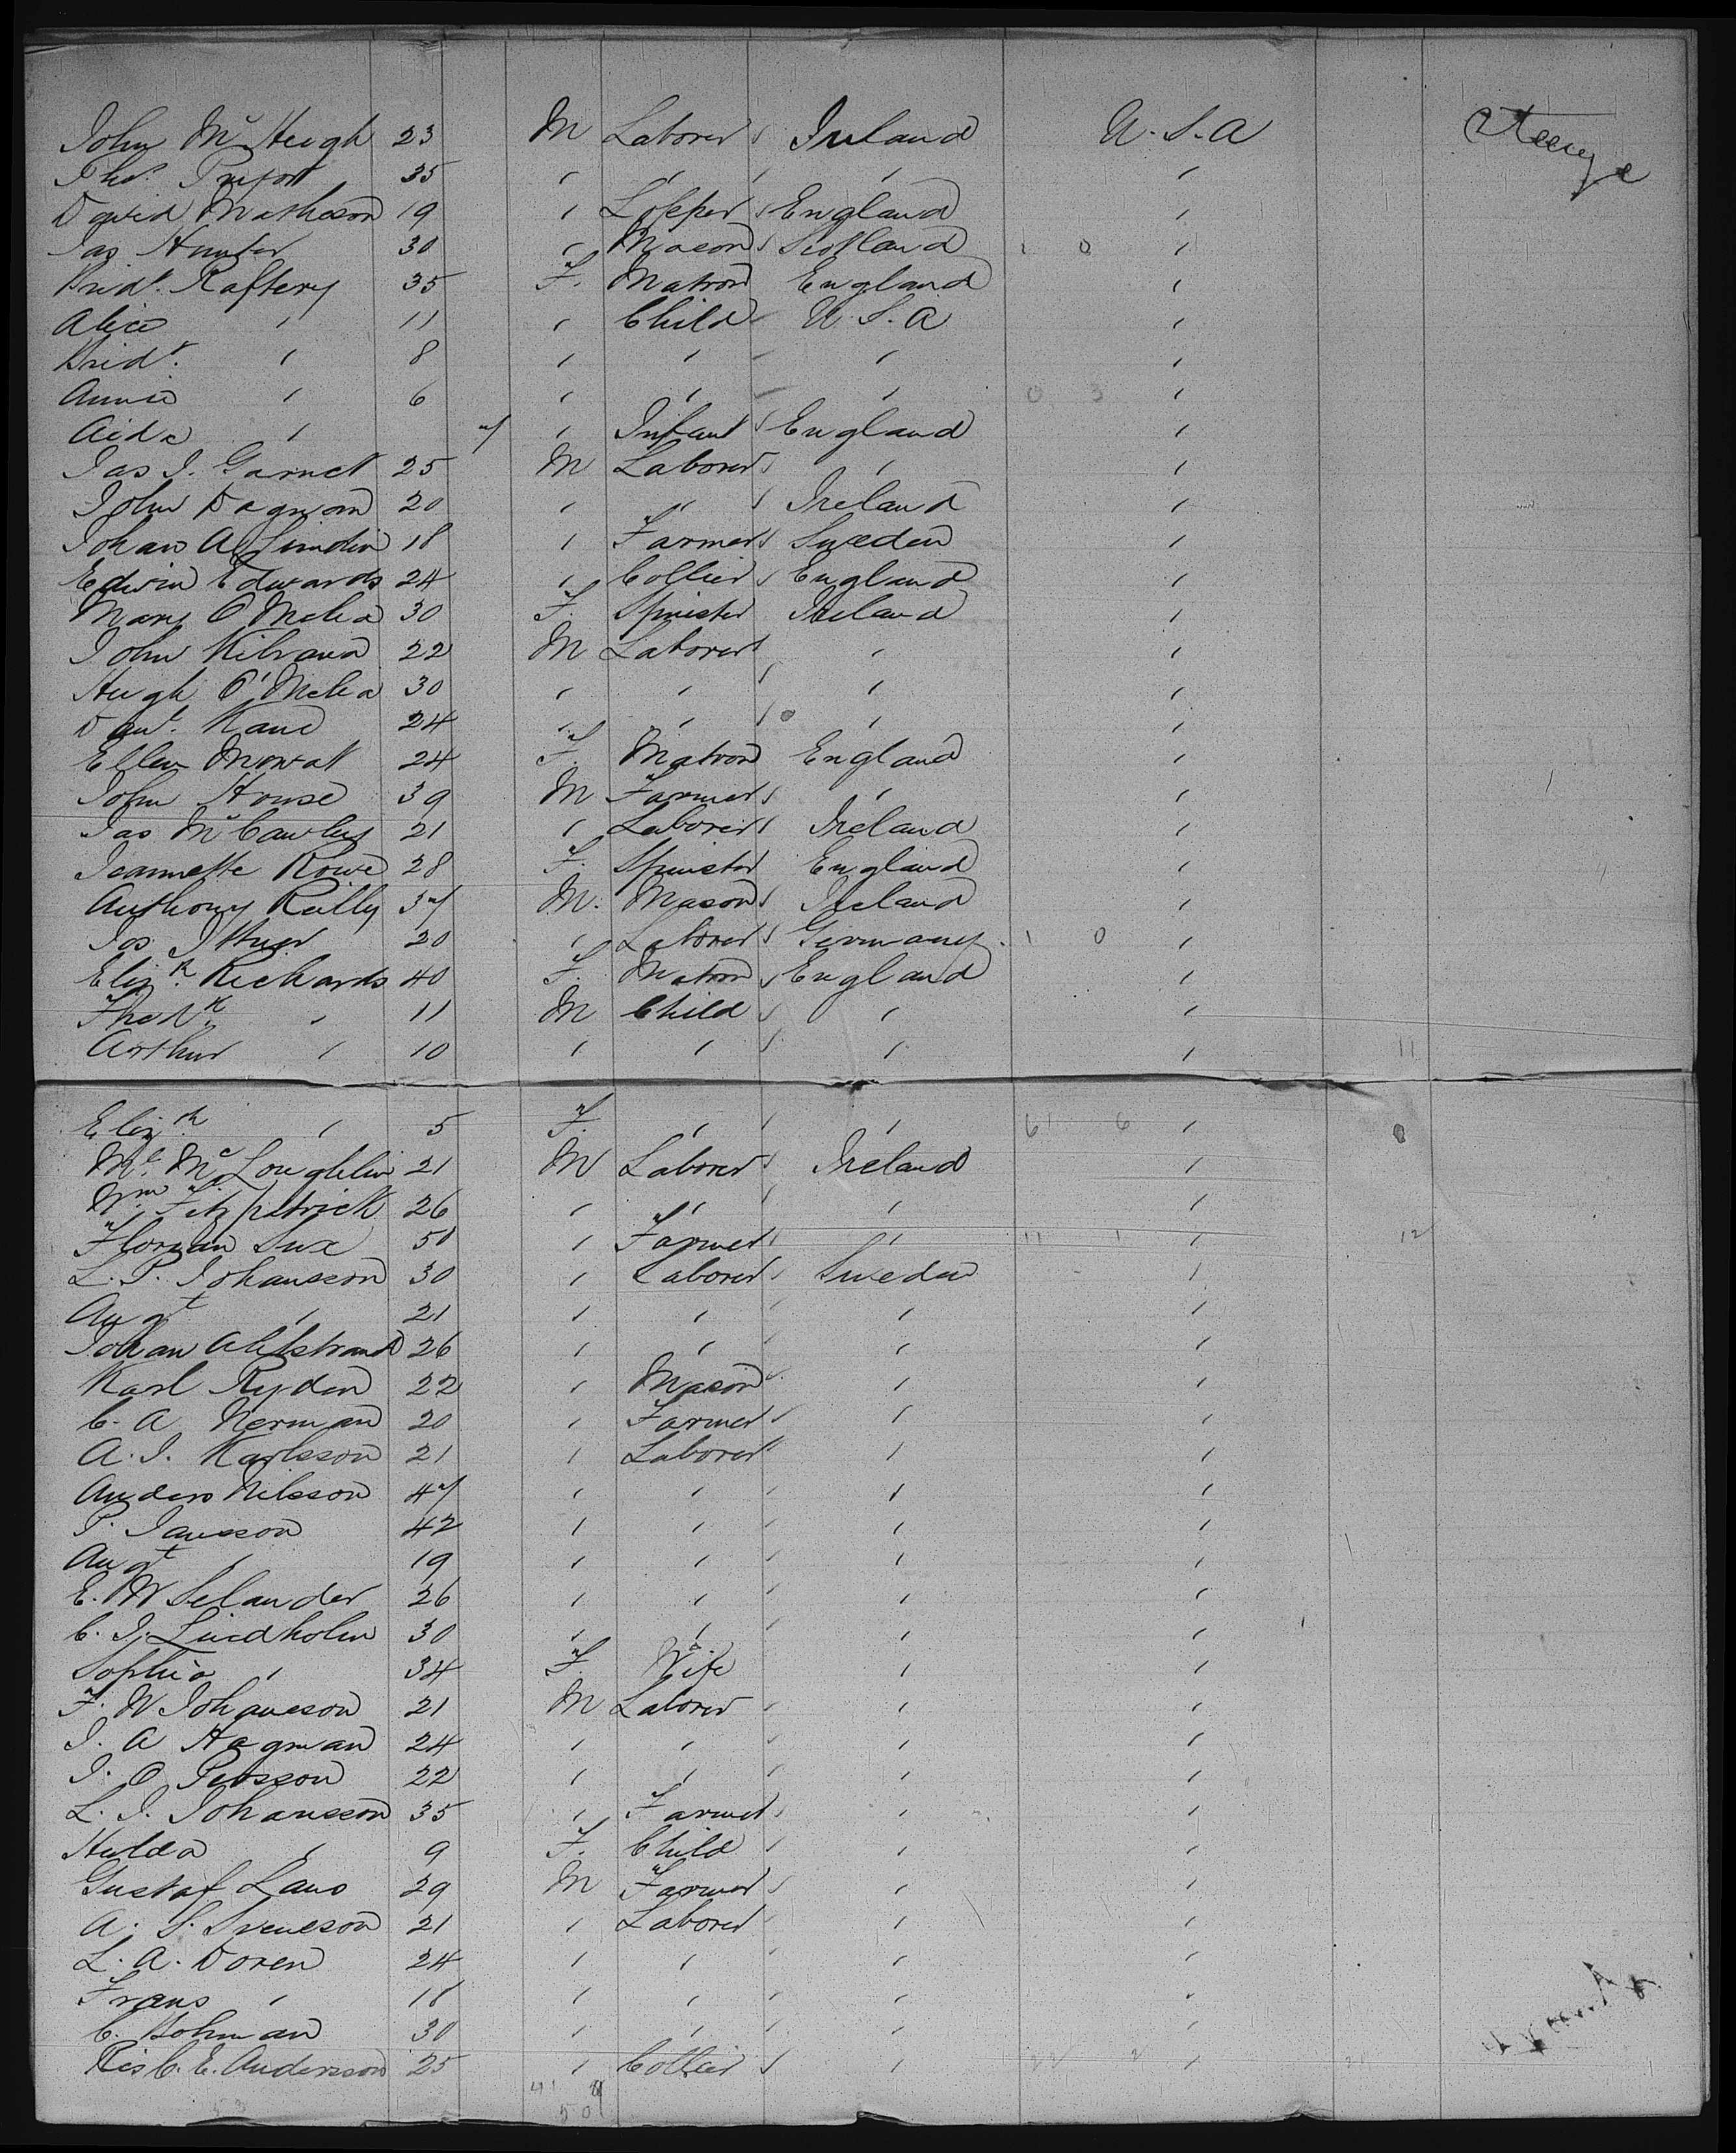 John McHugh 23 M Laborer Ireland U.S.A Steerage
Thos. Pryor 35 " " " "
David Matheson 19 " England "
Jas Hunter 30 " Mason Scotland 1 0 "
Bridt. Raftery 35 F. Matron England "
Alice " 11 " Child U.S.A "
Bridt. " 8 " " " "
Annie " 6 " " " 0 3 "
" 7 " Infant England "
Jas J. Garnet 25 M Laborer " "
John 20 " " Ireland "
Johan A 18 " Farmer Sweden "
Edwin Edwards 24 " Collier England "
Mary O'Melia 30 F. Spinster Ireland "
John Kilbane 22 M Laborer " "
Hugh O'Melia 30 " " " "
Danl. Kane 24 " " " "
Ellen Mowat 24 F. Matron England "
John House 39 M Farmer " "
Jas McCawley 21 " Laborer Ireland "
Jeannette Rowe 28 F. Spinster England "
Anthony Reilly 37 M. Mason Ireland "
Jos 20 " Laborer Germany 1 0 "
Elizth. Richards 40 F. Matron England "
Fredk. " 11 M Child " "
Arthur " 10 " " " " 11
Elizth " 5 F. " " 61 6 "
Ml. McLoughlin 21 M Laborer Ireland "
Wm. Fitzpatrick 26 " " " "
Florian 50 " Farmer " 11 1 " 12
L. P. Johansson 30 " Laborer Sweden "
Augt " 21 " " " "
Johan Ahlstrand 26 " " " "
Karl Ryden 22 " Mason " "
C. A Nerman 20 " Farmer " "
A. J. Karlsson 21 " Laborer " "
Anders Nilsson 47 " " " "
P. Jansson 42 " " " "
Augt " 19 " " " "
E. W Selander 26 " " " "
C. J. Lindholm 30 " " " "
Sophia " 34 F. Wife " "
F. W Johansson 21 M Laborer " "
J. A Hagman 24 " " " "
J. O Persson 22 " " " "
L. J. Johansson 35 " Farmer " "
Hulda " 9 F. Child " "
Gustaf Lans 29 M Farmer " "
A. S. Svensson 21 " Laborer " "
L. A. Doren 24 " " " "
Frans " 18 " " " "
C. Bohman 30 " " " "
C. E. Andersson 25 " Collier " 22 2 "
41
50